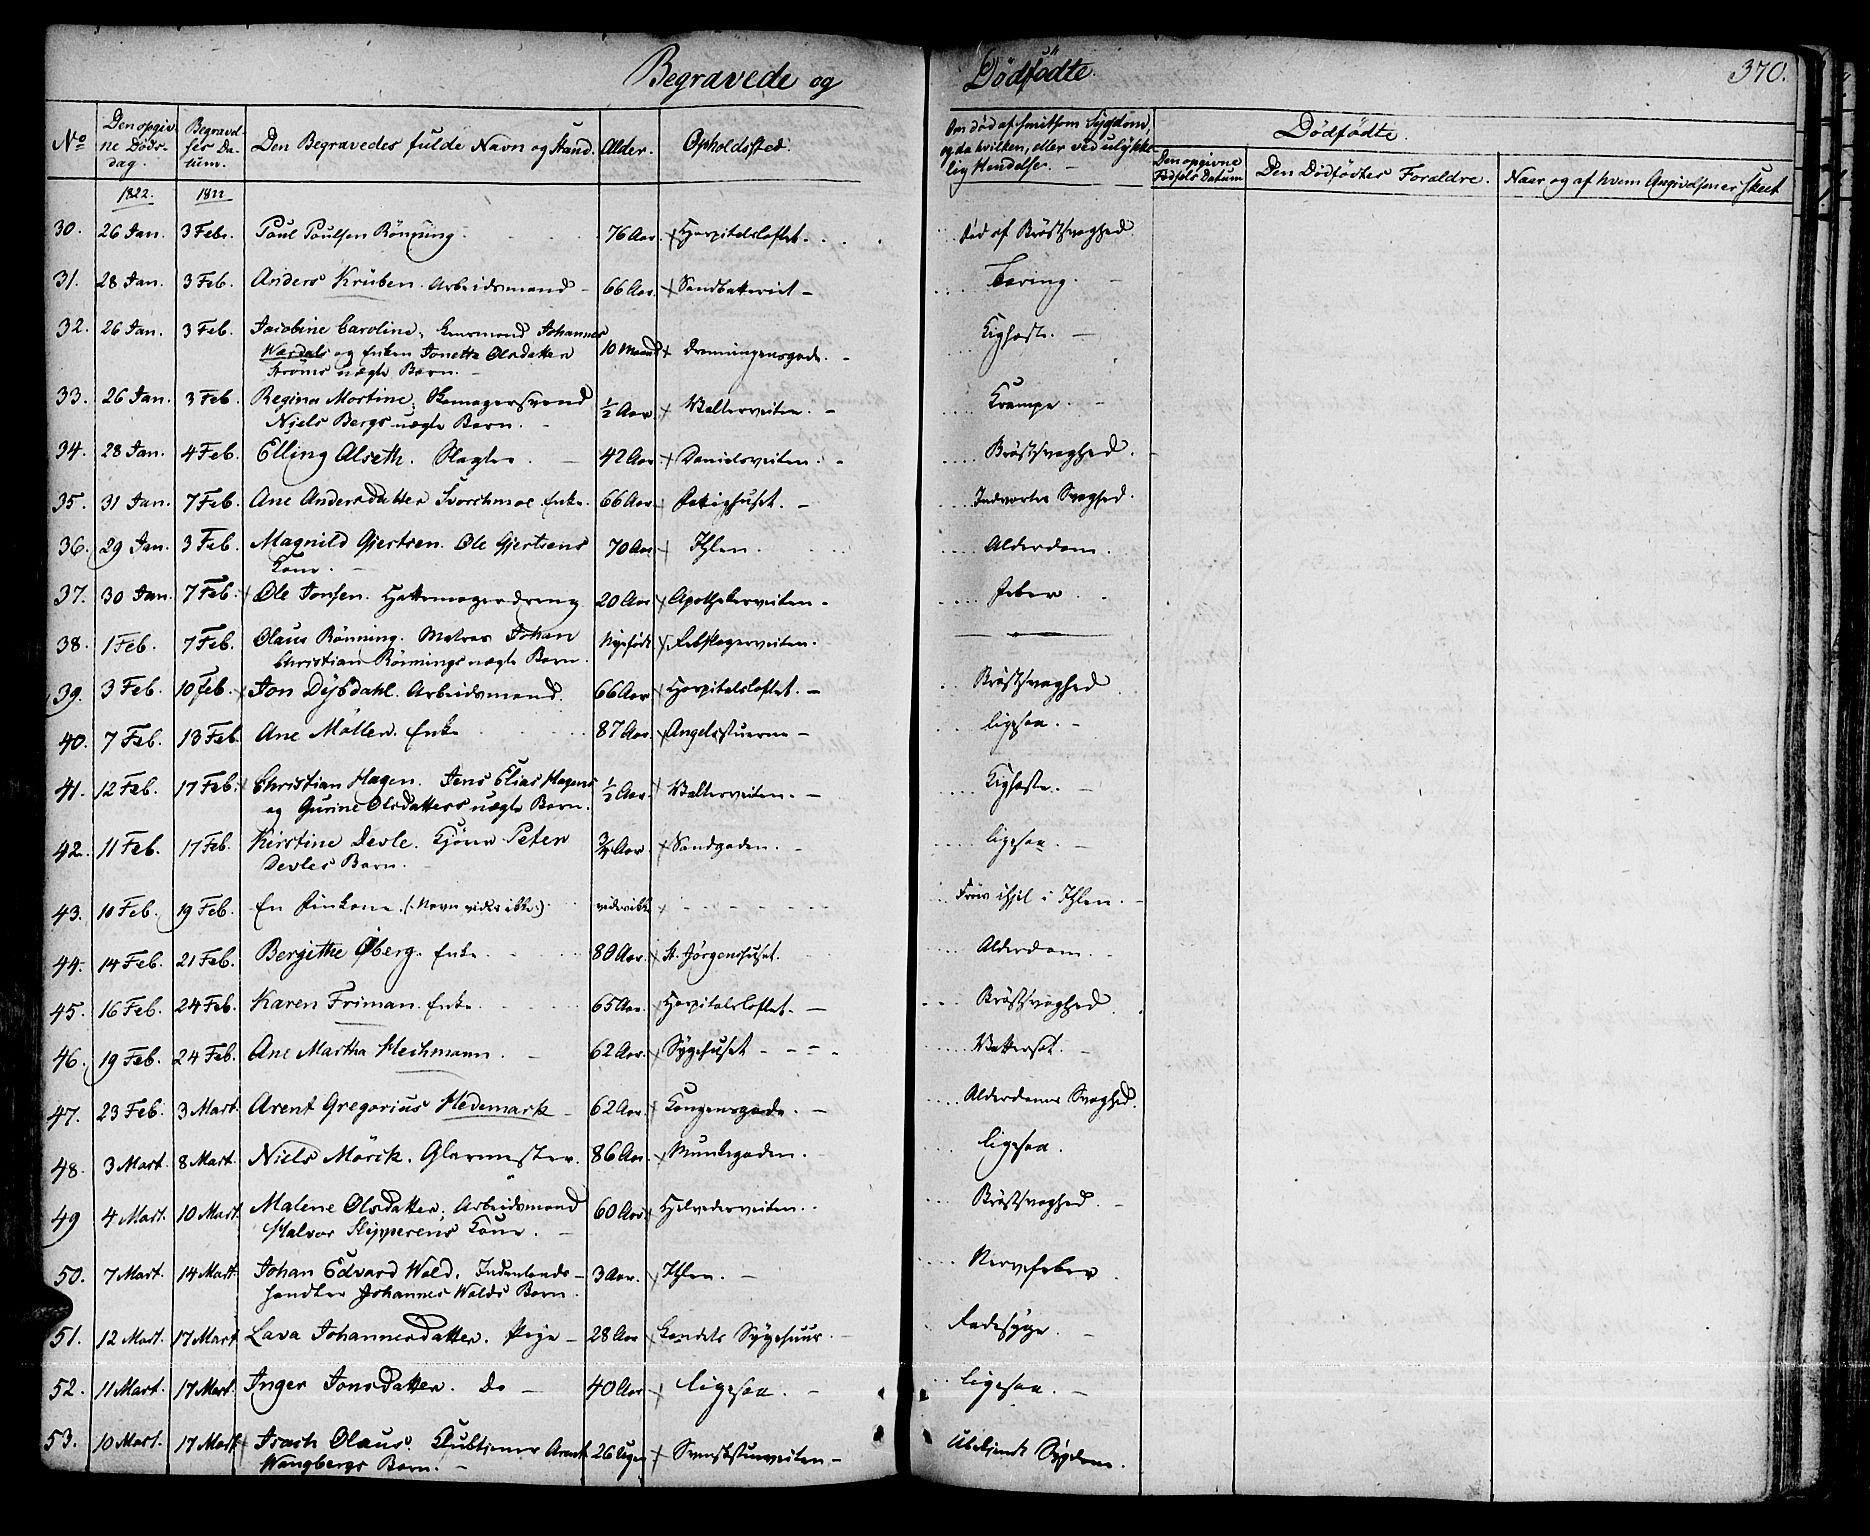 Begravede og Dødfødte.
370.
No
Den opgivne Døds-dag.
Begravelses Datum.
Den Begravedes fulde Navn og Stand.
Alder.
Opholdsted.
Om død af smitsom Sygdom, og da hvilken, eller ved ulykkelig Hendelse.
Dødfødte.
Den opgivne Fødsels Datum
Den Dødfødtes Forældre.
Naar og af hvem Angivelsen er skeet
1822. 1822
30. 26 Jan. 3 Febr. Poul Poulsen Rönning. 76 Aar. Hospitalsloftet. død af Bröstsvaghed.
31. 28 Jan. 3 Feb. Anders Krüben. Arbeidsmand 66 Aar. Sandbatteriet Tæring.
32. 26 Jan. 3 Feb. Jacobine Caroline, Johannes
Wardals og Enken Jonetta Olsdatter
Ströms uægte Barn. 10 Maaned Dronningensgade. Kighoste.
33. 26 Jan. 3 Feb. Regina Martine, Skomagersvend
Niels Bergs uægte Barn. ½ Aar Walterveiten. Krampe.
34. 28 Jan. 4 Feb. Elling Alseth. Slagter 42 Aar Danielsveiten. Bröstsvaghed.
35. 31 Jan. 7 Feb. Ane Andersdatter Svorchmoe Enke. 66 Aar. Indvortes Svaghed.
36. 29 Jan. 3 Feb. Magnild Gjertsen. Ole Gjertsens
Kone. 70 Aar Ihlen. Alderdom.
37. 30 Jan. 7 Feb. Ole Jonsen. Hattemagerdreng 20 Aar Apothekerveiten. Feber.
38. 1 Feb. 7 Feb. Olaus Rönning. Matros Johan
Christian Rönnings uægte Barn. Nyefödt Rebslagerveiten.
39. 3 Feb. 10 Feb. Jon Dÿbdahl. Arbeidsmand. 66 Aar Hospitalsloftet. Bröstsvaghed
40. 7 Feb. 13 Feb. Ane Möller. Enke 87 Aar. Angelsstuerne ligesaa.
41. 12 Feb. 17 Feb. Christian Hagen. Jens Elias Hagens
og Gurine Olsdatters uægte Barn. ½ Aar. Walterveiten. Kighoste.
42. 11 Feb. 17 Feb. Kirstine Devle. Peter
Devles Barn. ¾ Aar Sandgaden. ligesaa.
43. 10 Feb. 19 Feb. En Finkone. (Navn vides ikke.) vides ikke Frös ihjel i Ihlen.
44. 14 Feb. 21 Feb. Bergitthe Öberg. Enke. 80 Aar. St. Jörgenshuset. Alderdom.
45. 16 Feb. 24 Feb. Karen Friman. Enke. 65 Aar. Hospitalsloftet. Bröstsvaghed
46. 19 Feb. 24 Feb. Ane Martha Hechmann. 62 Aar. Sygehuset Wattersot.
47. 23 Feb. 3 Mart. Arent Gregorius Hedemark 62 Aar. Kongensgade. Alderdoms Svaghed.
48. 3 Mart. 8 Mart. Niels Mörck. Glarmester. 86 Aar. Munkegaden. ligesaa.
49 4 Mart. 10 Mart. Malene Olsdatter, Arbeidsmand
Halvor Skipperens Kone. 60 Aar Helvedesveiten. Bröstsvaghed.
50. 7 Mart. 14 Mart. Johan Edvard Wold. Indenlands-
handler Johannes Wolds Barn. 3 Aar. Ihlen. Nervefeber
51. 12 Mart. 17 Mart Lava Johannesdatter. Pige 28 Aar Landets Sygehuus. Radesyge.
52. 11 Mart. 17 Mart. Inger Jonsdatter. do 40 Aar ligesaa. ligesaa.
53. 10 Mart. 17 Mart Olaus. Arent
Wangbergs Barn. 26 Uger Ubekjendt Sÿgdom.